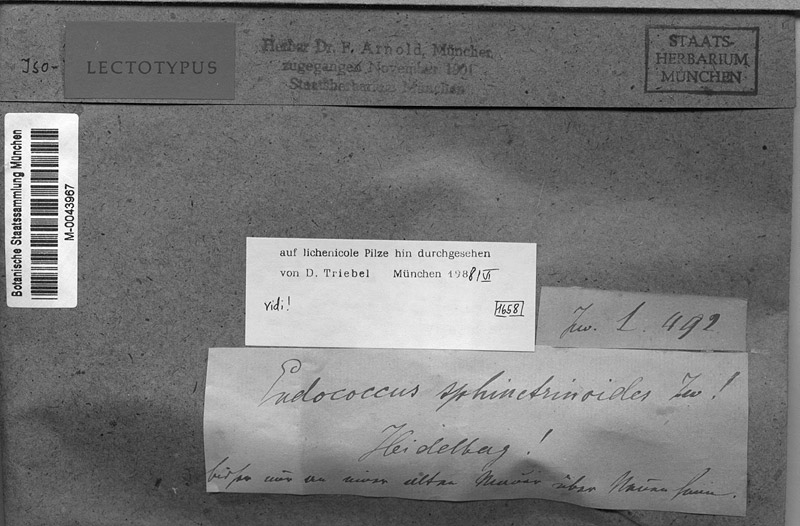 Iso-
LECTOTYPUS
Herbar Dr. F. Arnold, München,
zugegangen November 1901
Staatsherbarium München
STAATS-
HERBARIUM
MÜNCHEN
Botanische Staatssammlung München
M-0043967
auf lichenicole Pilze hin durchgesehen
von D. Triebel München 1988/VI
vidi!
1658
Zw. L. 492
Endococcus sphinctrinoides Zw!
Heidelbag!
bisher nur an einer alten Mauer über